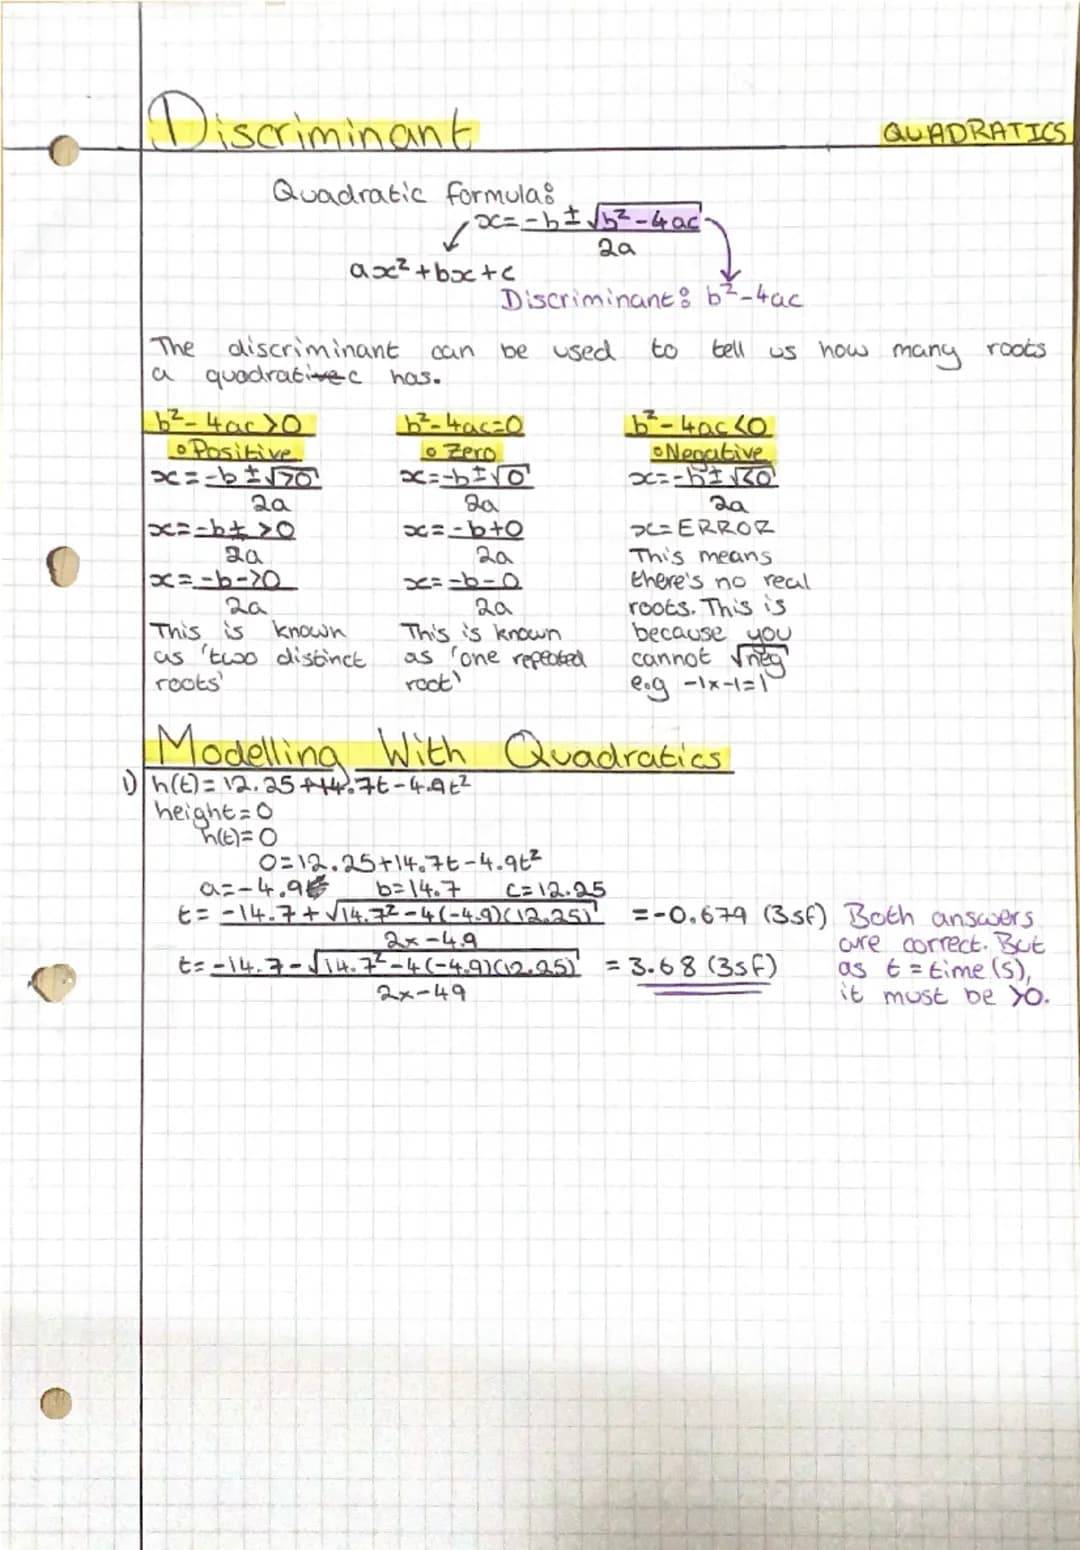 Discriminant
QUADRATICS
Quadratic formula:
x = -b ± √b² - 4ac
2a
ax² + bx + c
Discriminant: b² - 4ac
The discriminant can be used to tell us how many roots
a quadratic has.
b² - 4ac >0
• Positive
x = -b ± √>0
2a
x = -b + >0
2a
x = -b - >0
2a
This is known
as 'two distinct
roots'
b² - 4ac = 0
• Zero
x = -b ± √0
2a
x = -b + 0
2a
x = -b - 0
2a
This is known
as 'one repeated
root'
b² - 4ac <0
• Negative
x = -b ± √<0
2a
x = ERROR
This means
there's no real
roots. This is
because you
cannot √neg
e.g -1x-1=1
Modelling With Quadratics
1) h(t) = 12.25 + 14.7t - 4.9t²
height = 0
h(t) = 0
0 = 12.25 + 14.7t - 4.9t²
a = -4.9 b = 14.7 c = 12.25
t = -14.7 + √14.7² - 4(-4.9)(12.25) = -0.679 (3sf)
2x-4.9
t = -14.7 - √14.7² - 4(-4.9)(12.25) = 3.68 (3sf)
2x-49
Both answers
are correct. But
as t = time (s),
it must be >0.